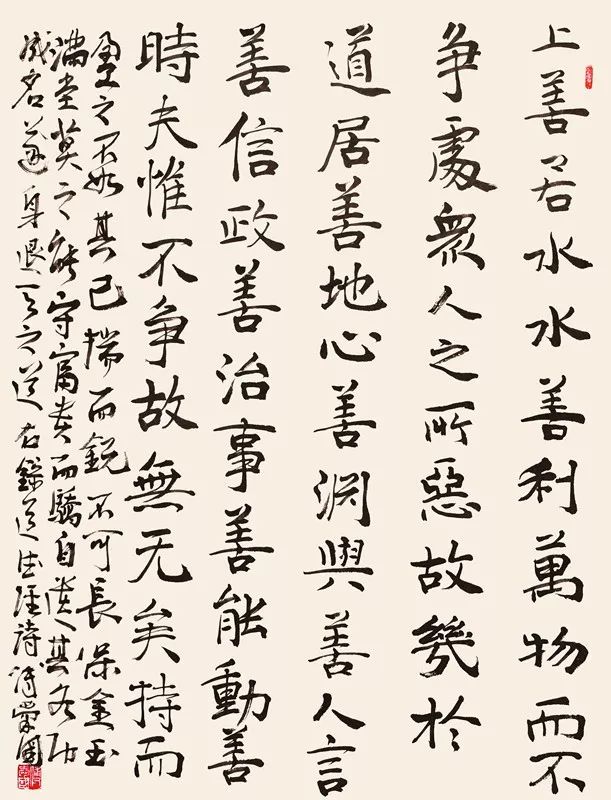 上善若水水善利萬物而不
争處衆人之所惡故幾於
道居善地心善渊與善人言
善信政善治事善能動善
時夫惟不争故無无矣持而
盈之不如其已揣而銳不可長保金玉
滿堂莫之能守富贵而驕自遗其咎功
成名遂身退天之道右錄道德经詩